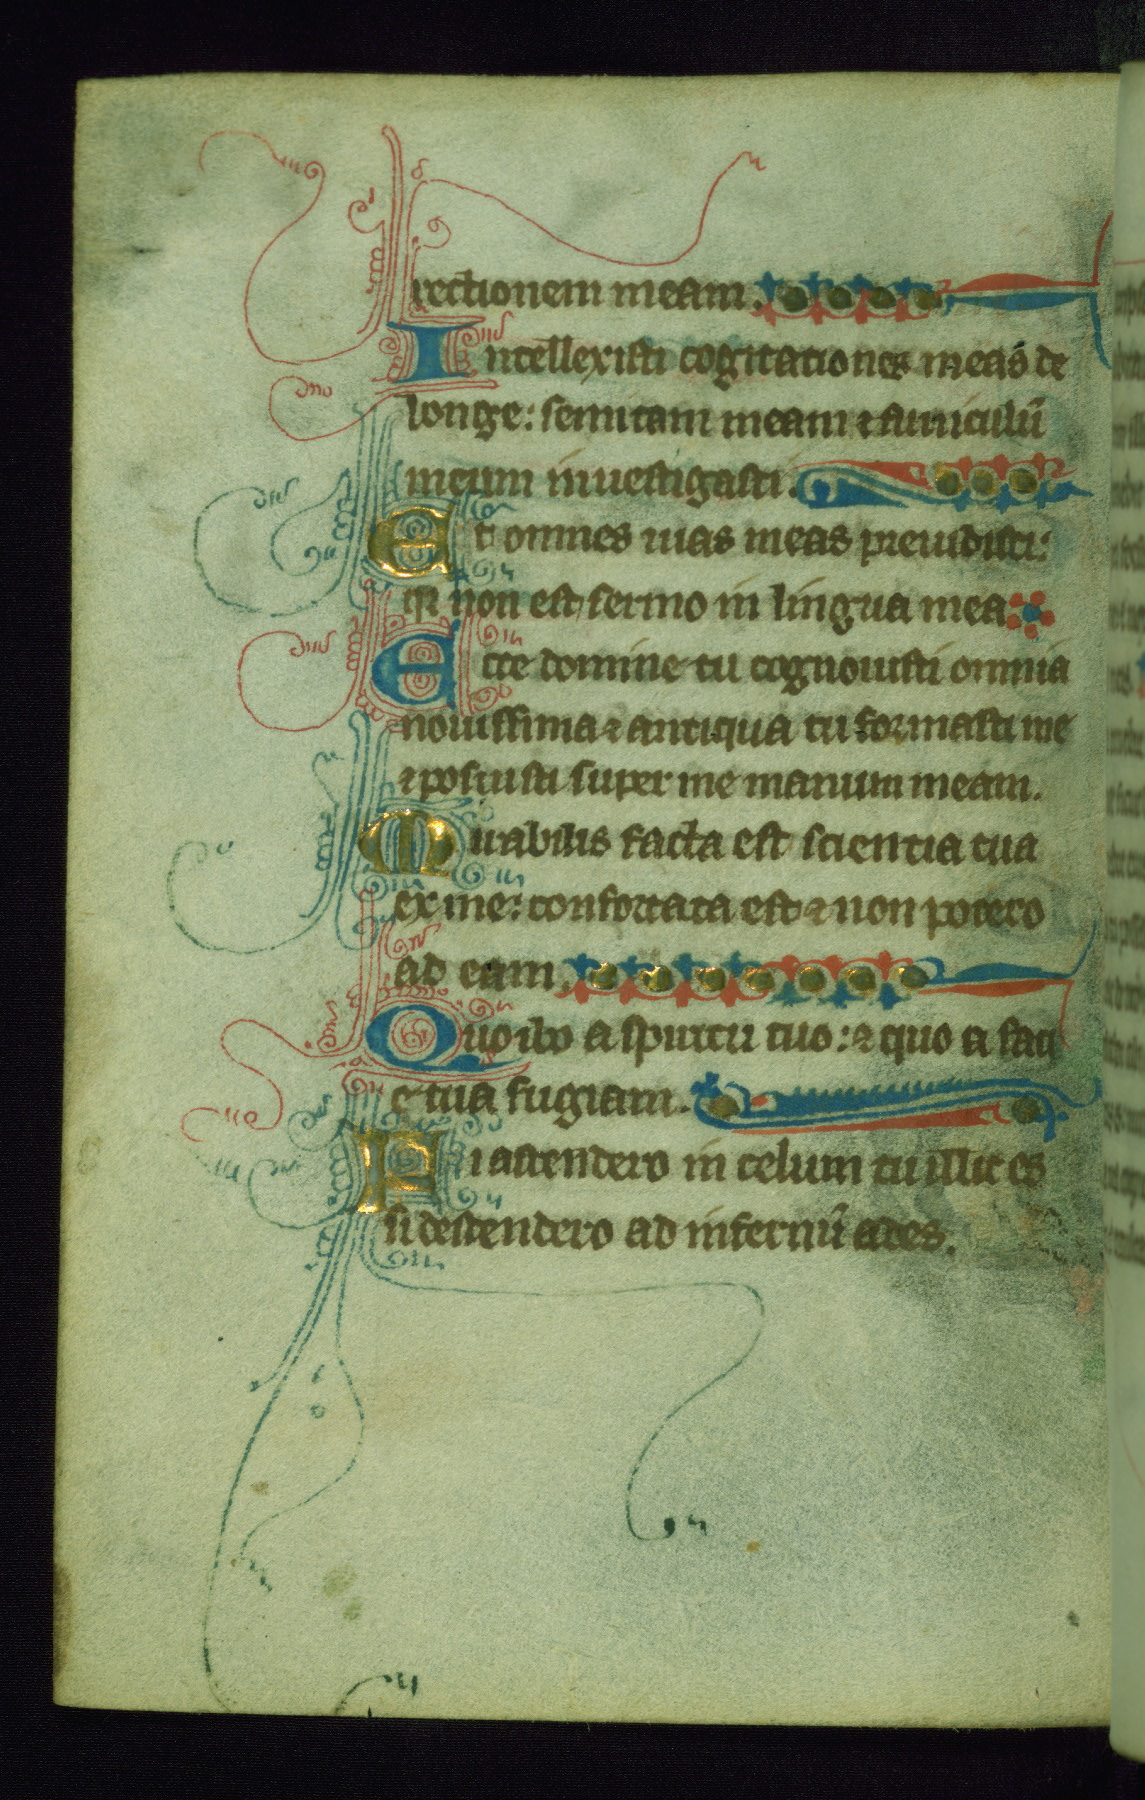 rectionem meam.
Intellexisti cogitationes meas de
longe: semitam meam ⁊ funiculū
meum inuestigasti.
Et omnes uias meas preuidisti:
qr non est sermo in lingua mea
Ecce domine tu cognouisti omnia
nouissima ⁊ antiqua tu formasti me
⁊ posuisti super me manum meam.
Mirabilis facta est scientia tua
ex me: confortata est ⁊ non potero
ad eam.
Quo ibo a spiritu tuo: ⁊ quo a faci
e tua fugiam.
Si ascendero in celum tu illic es
si descendero ad infernū ades.